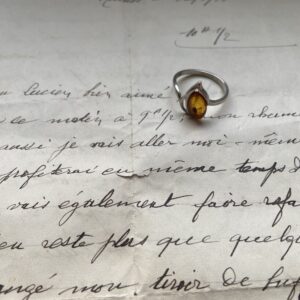 10h 1/2
Lucien bien aimé
ce matin à 9h 1/2, un rhum
aussi je vais aller moi-mêm
profiterai en même temps d
vais également faire refa
en reste plus que quelqu
rangé mon tiroir de